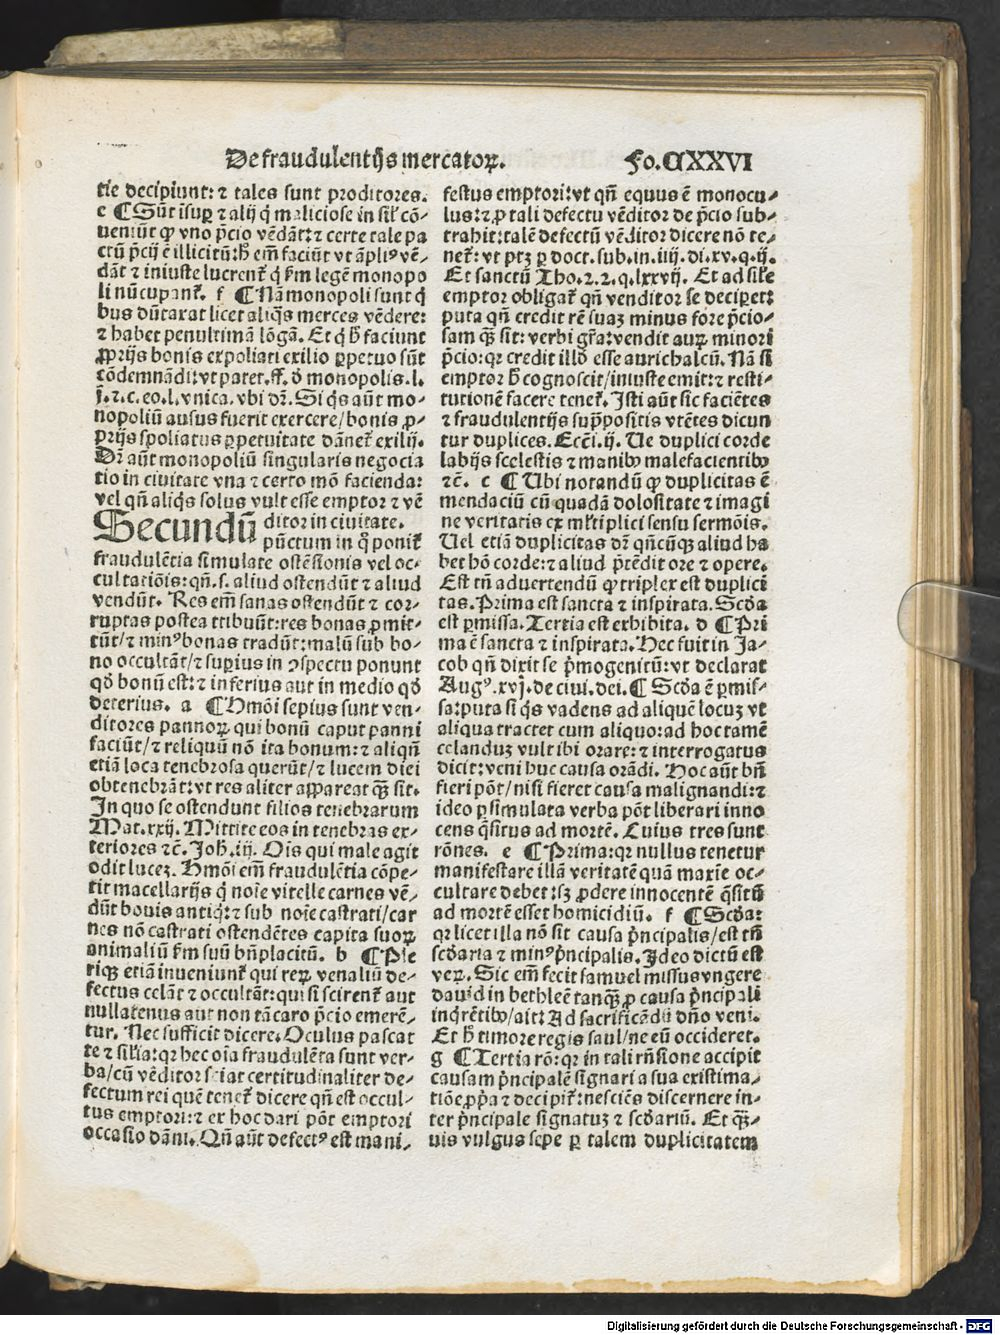 De fraudulentijs mercatoꝝ. Fo. CXXVI
tie decipiunt: ⁊ tales sunt proditores.
c ¶ Sūt īsuꝑ ⁊ alij q̇ maliciose in sil̓ cō-
ueniūt ꝙ vno p̄cio vēdāt: ⁊ certe tale pa
ctū p̄cij ē illicitū: h̄ em̄ faciūt vt āpliꝰ vē-
dāt ⁊ iniuste lucrent̄ q̇ ẜm legē monopo
li nūcupant̄. f ¶ Nā monopoli sunt q̇
bus dūtaxat licet aliq̇s merces vēdere:
⁊ habet penultimā lōgā. Et q̇ h̄ faciunt
ꝓprijs bonis expoliati exilio ꝑpetuo sūt
cōdemnādi: vt patet. ff. ð monopolis. l.
j. ⁊. c. eo. l. vnica. vbi dr̄. Si q̇s aūt mo-
nopoliū ausus fuerit exercere / bonis ꝓ-
prijs spoliatus ꝑpetuitate dānet̄ exilij.
Dr̄ aūt monopoliū singularis negocia
tio in ciuitate vna ⁊ certo mō facienda:
vel qn̄ aliq̇s solus vult esse emptor ⁊ vē
Secundū ditor in ciuitate.
pūctum in q̊ ponit̄
fraudulētia simulate ostēsionis vel oc-
cultatiōis: qn̄. s. aliud ostendūt ⁊ aliud
vendūt. Res em̄ sanas ostendūt ⁊ cor-
ruptas postea tribuūt: res bonas ꝓmit-
tūt / ⁊ minꝰ bonas tradūt: malū sub bo-
no occultāt / ⁊ suꝑius in ꝯspectu ponunt
qd̄ bonū est: ⁊ inferius aut in medio qd̄
deterius. a ¶ Hmōi sepius sunt ven-
ditores pannoꝝ qui bonū caput panni
faciūt / ⁊ reliquū nō ita bonum: ⁊ aliqn̄
etiā loca tenebrosa querūt / ⁊ lucem diei
obtenebrāt: vt res aliter appareat q̄ꝫ sit.
In quo se ostendunt filios tenebrarum
Mat. xxij. Mittite eos in tenebras ex-
teriores ⁊c̄. Joh̄. iij. Ois qui male agit
odit luceꝫ. Hmōi em̄ fraudulētia cōpe-
tit macellarijs q̇ noīe vitelle carnes vē-
dūt bouis antiq̇: ⁊ sub noīe castrati / car
nes nō castrati ostendētes capita suoꝝ
animaliū ẜm suū bn̄placitū. b ¶ Ple
riqꝫ etiā inueniunt̄ qui reꝝ venaliū de-
fectus celāt ⁊ occultāt: qui si scirent̄ aut
nullatenus aut non tā caro p̄cio emerē-
tur. Nec sufficit dicere. Oculus pascat
te ⁊ sil̓ia: qꝛ hec oīa fraudulēta sunt ver-
ba / cū vēditor sciat certitudinaliter de-
fectum rei quē tenet̄ dicere qn̄ est occul-
tus emptori: ⁊ ex hoc dari pōt emptori
occasio dāni. Qn̄ aūt defectꝰ est mani-
festus emptori: vt qn̄ equus ē monocu-
lus: ⁊ ꝓ tali defectu vēditor de p̄cio sub-
trahit: talē defectū vēditor dicere nō te-
net̄: vt ptꝫ ꝑ doct. sub. in. iiij. di. xv. q. ij.
Et sanctū Tho. 2. 2. q. lxxvij. Et ad sil̓e
emptor obligat̄ qn̄ venditor se decipet:
puta qn̄ credit rē suaꝫ minus fore p̄cio-
sam q̄ꝫ sit: verbi gr̄a: vendit auꝝ minori
p̄cio: qꝛ credit illd̄ esse aurichalcū. Nā si
emptor h̄ cognoscit / iniuste emit: ⁊ resti-
tutionē facere tenet̄. Isti aūt sic faciētes
⁊ fraudulentijs sup̄positis vtētes dicun
tur duplices. Ecc̄i. ij. Ue duplici corde
labijs scelestis ⁊ manibꝰ malefacientibꝰ
⁊c̄. c ¶ Ubi notandū ꝙ duplicitas ē
mendaciū cū quadā dolositate ⁊ imagi
ne veritatis ex ml̓tiplici sensu sermōis.
Uel etiā duplicitas dr̄ qn̄cūqꝫ aliud ha
bet hō corde: ⁊ aliud p̄tēdit ore ⁊ opere.
Est tn̄ aduertendū ꝙ triplex est duplici
tas. Prima est sancta ⁊ inspirata. Scd̄a
est ꝑmissa. Tertia est exhibita. d ¶ Pri
ma ē sancta ⁊ inspirata. Hec fuit in Ja-
cob qn̄ dixit se p̄mogenitū: vt declarat
Augꝰ. xvj. de ciui. dei. ¶ Scd̄a ē ꝑmis-
sa: puta si q̇s vadens ad aliquē locuꝫ vt
aliqua tractet cum aliquo: ad hoc tamē
celanduꝫ vult ibi orare: ⁊ interrogatus
dicit: veni huc causa orādi. Hoc aūt bn̄
fieri pōt / nisi fieret causa malignandi: ⁊
ideo ꝑ simulata verba pōt liberari inno
cens q̄situs ad mortē. Cuius tres sunt
rōnes. e ¶ Prima: qꝛ nullus tenetur
manifestare illā veritatē quā maxīe oc-
cultare debet: sꝫ ꝓdere innocentē q̄sitū
ad mortē esset homicidiū. f ¶ Scd̄a:
qꝛ licet illa nō sit causa p̄ncipalis / est tn̄
scd̄aria ⁊ minꝰ p̄ncipalis. Ideo dictū est
veꝝ. Sic em̄ fecit samuel missus vngere
dauid in bethleē tanqꝫ ꝓ causa p̄ncipali
inq̇rētibꝰ / ait: Ad sacrificādū dn̄o veni.
Et h̄ timore regis saul / ne eū occideret.
g ¶ Tertia rō: qꝛ in tali rn̄sione accipit
causam p̄ncipalē signari a sua existima-
tiōe ꝓp̄a ⁊ decipit̄: nesciēs discernere in-
ter p̄ncipale signatuꝫ ⁊ scd̄ariū. Et q̄ꝫ-
uis vulgus sepe ꝑ talem duplicitatem
Digitalisierung gefördert durch die Deutsche Forschungsgemeinschaft - DFG